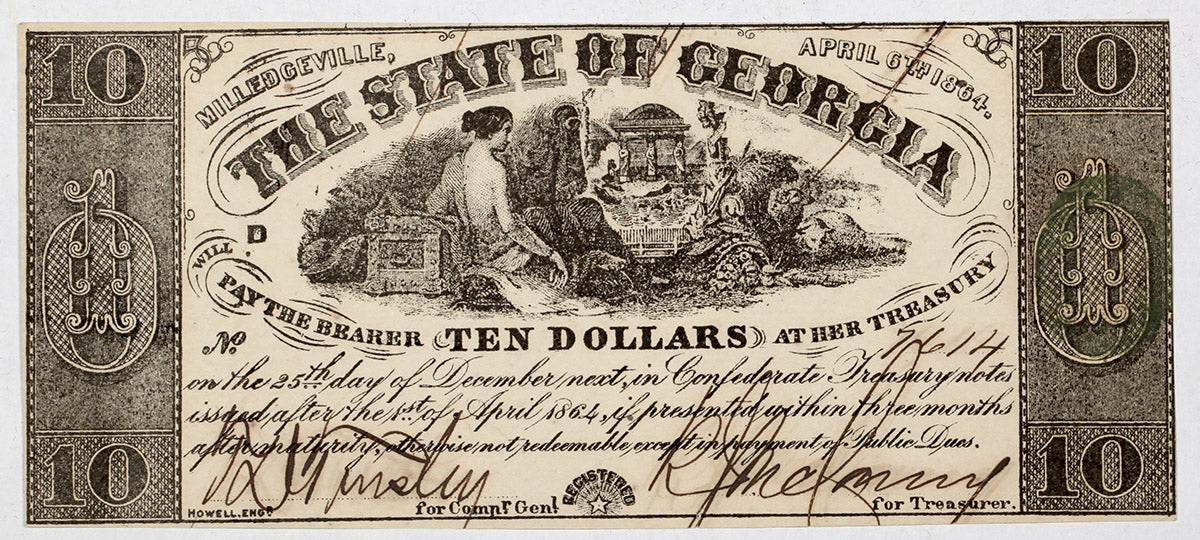 10
10
MILLEDGEVILLE,
APRIL 6TH 1864.
THE STATE OF GEORGIA
10
10
D
WILL
PAY THE BEARER TEN DOLLARS AT HER TREASURY
No
7614
on the 25th day of December next, in Confederate Treasury notes
issued after the 1st of April 1864, if presented within three months
after maturity, otherwise not redeemable except in payment of Public Dues.
for Compr Genl
REGISTERED
for Treasurer.
HOWELL, ENGR
10
10